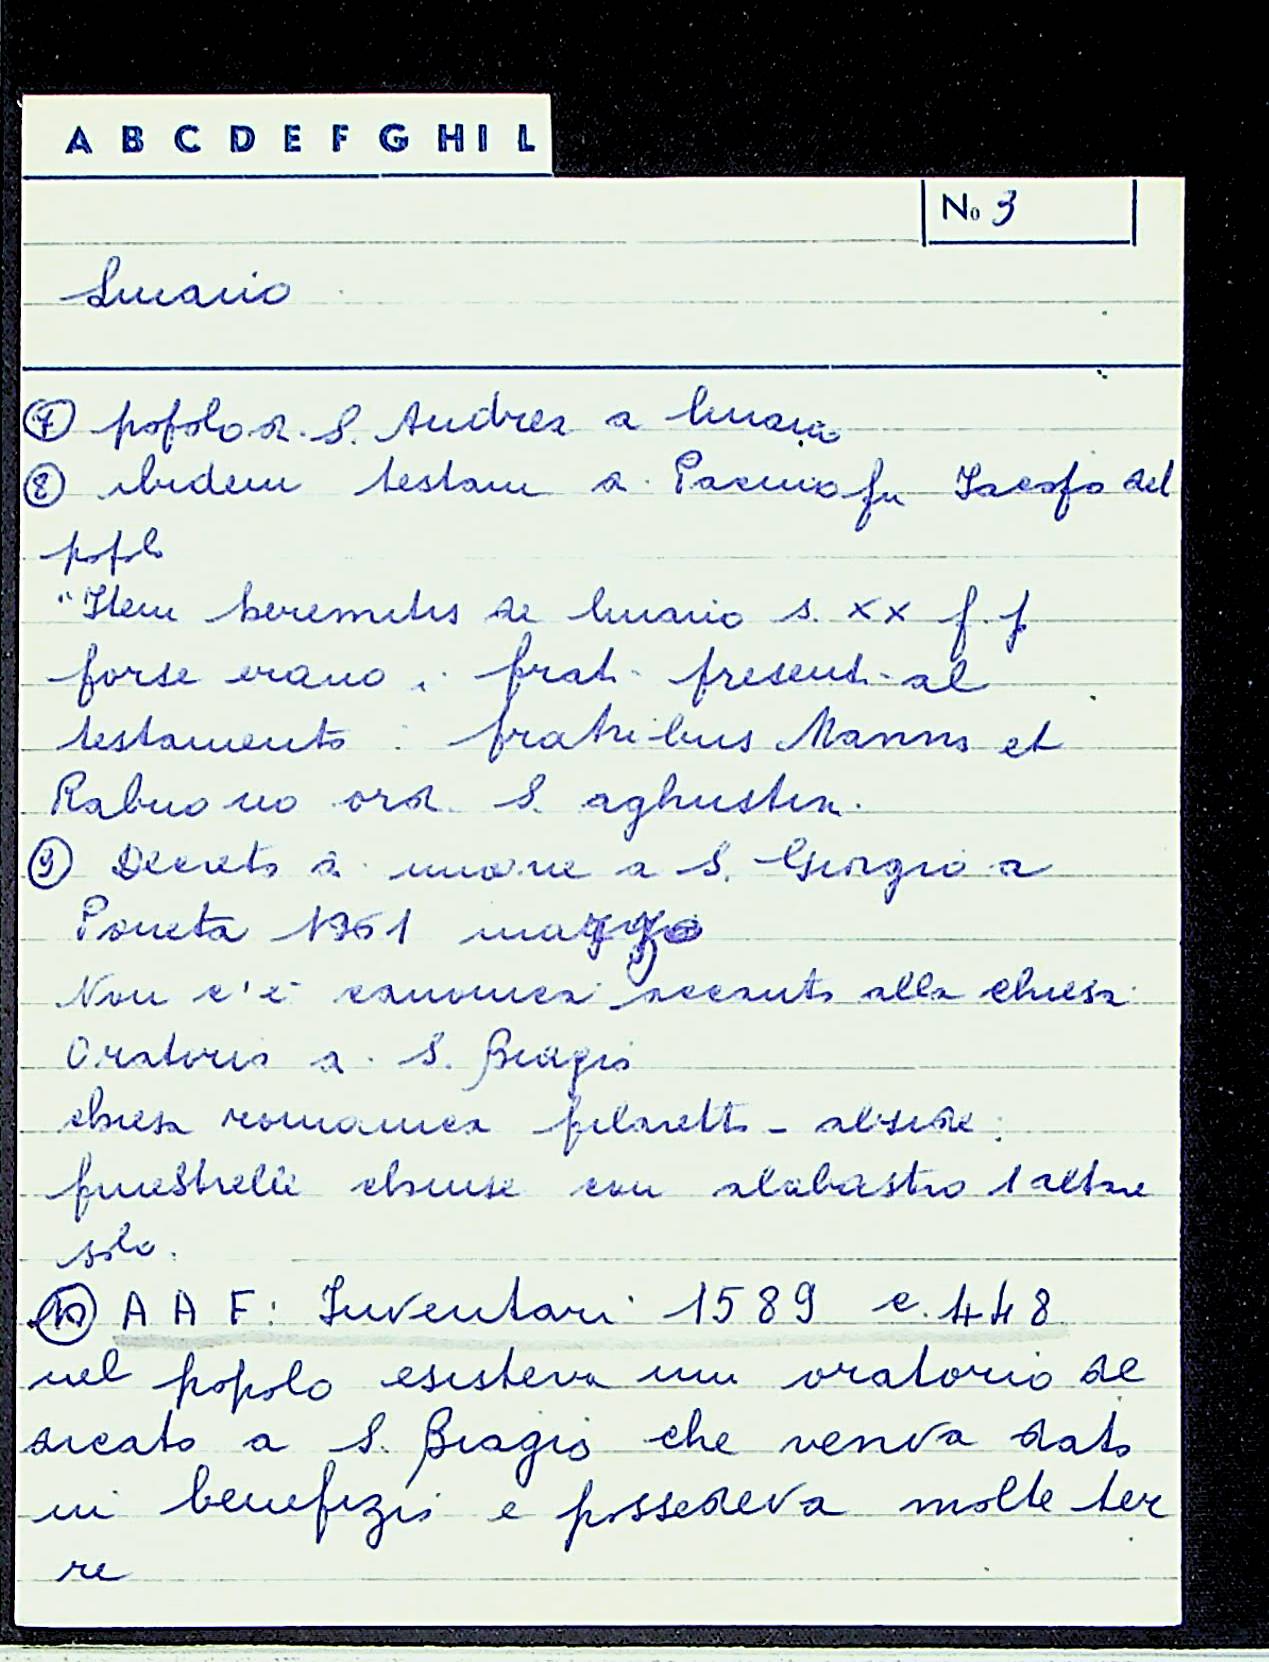 A B C D E F G H I L
No 3
Linario
⑦ popolo di S. Andrea a Linario
⑧ ibidem testam di Pacino fu Iacopo del
popolo
"Item heremitis de Linario s. XX f.f
forse erano i frati presenti al
testamento : fratribus Manno et
Rabuono ord. S. aghustin.
⑨ Decreto di unione a S. Giorgio a
Poneta 1361 maggio
Non c'è canonica accanto alla chiesa
Oratorio di S. Biagio
chiesa romanica filaretto - abside:
finestrelle chiuse con alabastro 1 altare
solo.
⑩ A A F: Inventari 1589 c. 448
nel popolo esisteva un oratorio de
dicato a S. Biagio che veniva dato
in benefizio e possedeva molte ter
re